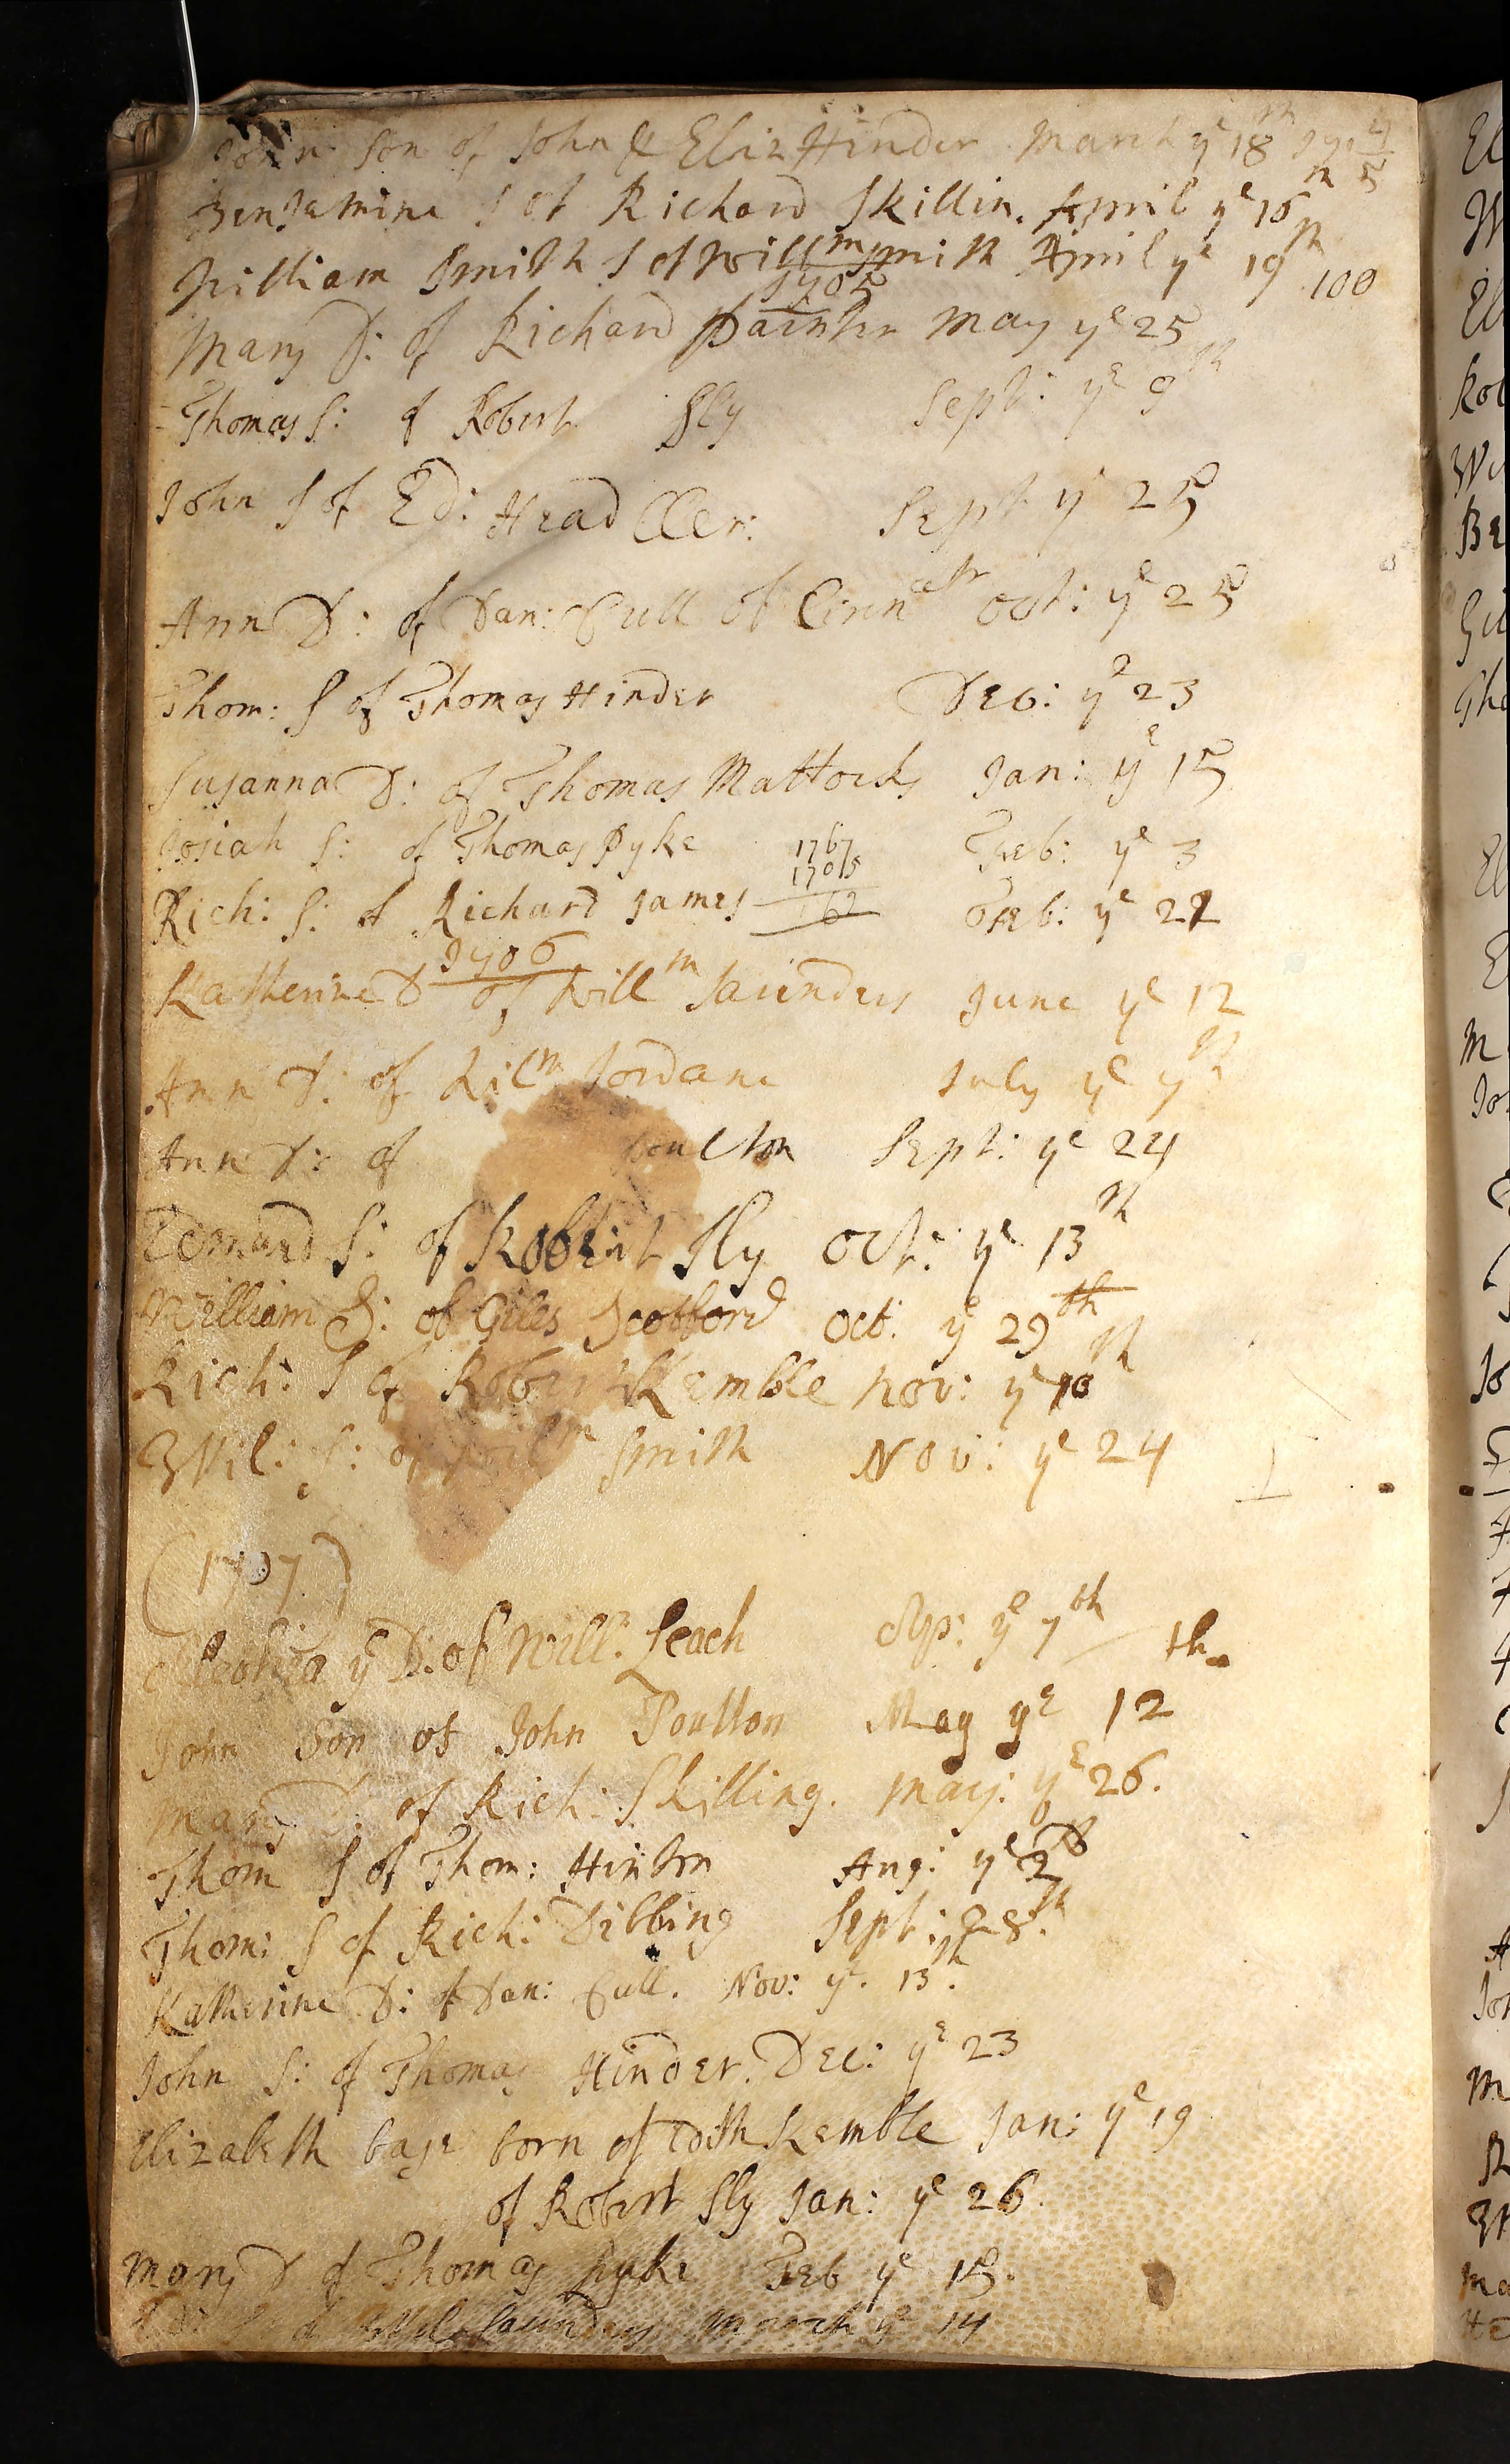 John son of John & Eliz Hinder March ye 18th 170 4/5
Benjamine S of Richard Skillin. April ye 16th
William Smith S of Willm Smith April ye 19th 100
1705
Mary D: of Richard Painter May ye 25
Thomas S: of Robert Sly Sept: ye 9th
John S of Ed: Head Cler: Sept ye 25
Ann D: of Dan: Cull of Cirncestr Oct: ye 25
Thom: S of Thomas Hinder Dec: ye 23
Susanna D: of Thomas Mattocks Jan: ye 15
Josiah S: of Thomas Pyke Feb: ye 3
1767
1705
62
Rich: S: of Richard James Feb: ye 22
1706
Katherine D of Willm Saunders June ye 12
Ann D: of Wilm Jordane July ye 7th
Ann D: of Poulton Sept: ye 24
Edward S: of Robert Sly Oct: ye 13th
William S: of Giles Scotford Oct: ye 29th
Rich: S of Robert Kemble Nov: ye 10th
Wil: S: of Wilm Smith Nov: ye 24
(1707)
ye D: of Will: Leach Sep: ye 7th
John Son of John Poulton May ye 12th
Mary D: of Rich: Skilling. May: ye 26.
Thom S of Thom: Hinton Aug: ye 2D
Thom: S of Rich: Dibbing Sept: 28th
Katherine D: of Dan: Cull. Nov: ye 13th.
John S: of Thomas Hinder. Dec: ye 23
Elizabeth base born of Edith Kemble Jan: ye 19
of Robert Sly Jan: ye 26.
Mary D of Thomas Pyke Feb ye 15.
of Wil Saunders March ye 14